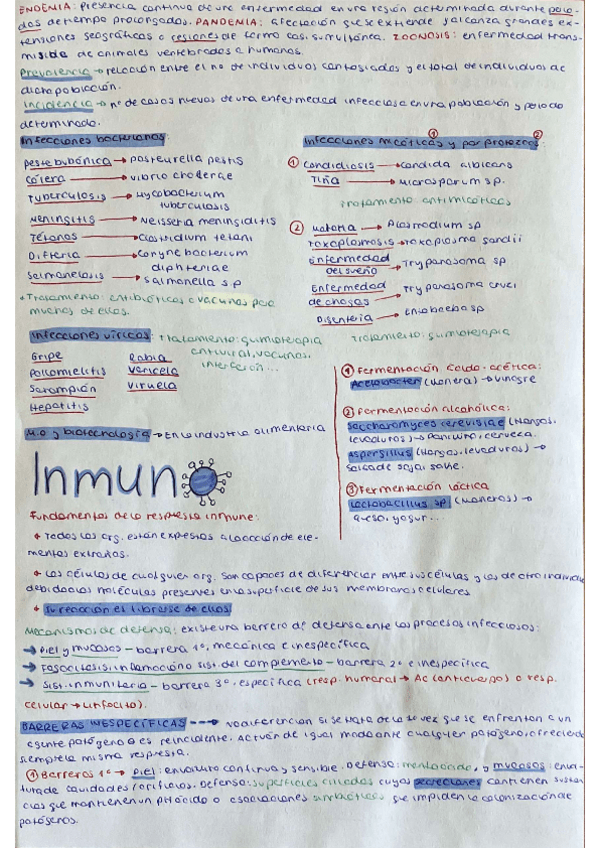 ENDEMIA: presencia continua de una enfermedad en una región determinada durante perio-
dos de tiempo prolongados. PANDEMIA: afectación que se extiende y alcanza grandes ex-
tensiones geográficas o regiones de forma casi simultónea. ZOONOSIS: enfermedad trans-
misible de animales vertebrados a humanos.
Prevalencia → relación entre el nº de individuos contagiados y el total de individuos de
dicha población.
Incidencia → nº de casos nuevos de una enfermedad infecciosa en una población y periodo
determinado.
Infecciones bacterianas:
peste bubónica → pasteurella pestis
Cólera → vibrio cholerae
Tuberculosis → Mycobacterium
tuberculosis
Meningitis → Neisseria meningiditis
Tétanos → Clostridium tetani
Difteria → Corynebacterium
diphteriae
Salmonelosis → salmonella sp
* Tratamiento: antibióticos o vacunas para
muchas de ellas.
Infecciones micóticas ① y por protozoos ②:
① Candidiasis → candida albicans
Tiña → Microsporum sp.
Tratamiento antimicóticos
② Malaria → Plasmodium sp
Toxoplasmosis → Toxoplasma gandii
Enfermedad
del sueño → Trypanosoma sp
Enfermedad
de chagas → Trypanosoma cruci
Disentería → Entabaeba sp
Tratamiento: quimioterapia
Infecciones víricas: Tratamiento: quimioterapia
antiviral, vacunas,
interferón...
Gripe Rabia
Poliomielitis Varicela
Sarampión Viruela
Hepatitis
M.O y biotecnología → En la industria alimentaria
① Fermentación ácido-acética:
Acetobacter (Monera) → vinagre
② Fermentación alcohólica:
Saccharomyces cerevisiae (Hongos,
levaduras) → pan, vino, cerveza.
Aspergillus (Hongos, levaduras) →
salsa de soja, sake.
③ Fermentación láctica
Lactobacillus sp (Moneras) →
queso, yogur...
Inmuno
Fundamentos de la respuesta inmune:
* Todos los org. están expuestos a la acción de ele-
mentos extraños.
* Las células de cualquier org. son capaces de diferenciar entre sus células y las de otro individuo
debido a las moléculas presentes en la superficie de sus membranas celulares.
* Su reacción es librarse de ellas
Mecanismos de defensa: existe una barrera de defensa ante los procesos infecciosos:
→ Piel y mucosas – barrera 1ª, mecánica e inespecífica
→ Fagocitosis, inflamación o sist. del complemento – barrera 2ª e inespecífica
→ Sist. inmunitario – barrera 3ª, específica (resp. humoral → Ac (anticuerpos) o resp.
celular → linfocito).
BARRERAS INESPECÍFICAS ---→ no diferencian si se trata de la 1ª vez que se enfrentan a un
agente patógeno o es reincidente. Actúan de igual modo ante cualquier patógeno, ofreciendo
siempre la misma respuesta.
① Barreras 1ª → Piel: envoltura continua y sensible. Defensa: y mucosas:
tura de cavidades/orificios. Defensa: superficies ciliadas cuyas secreciones contienen sustan
cias que mantienen un pH ácido o asociaciones simbióticas que impiden la colonización de
patógenos.